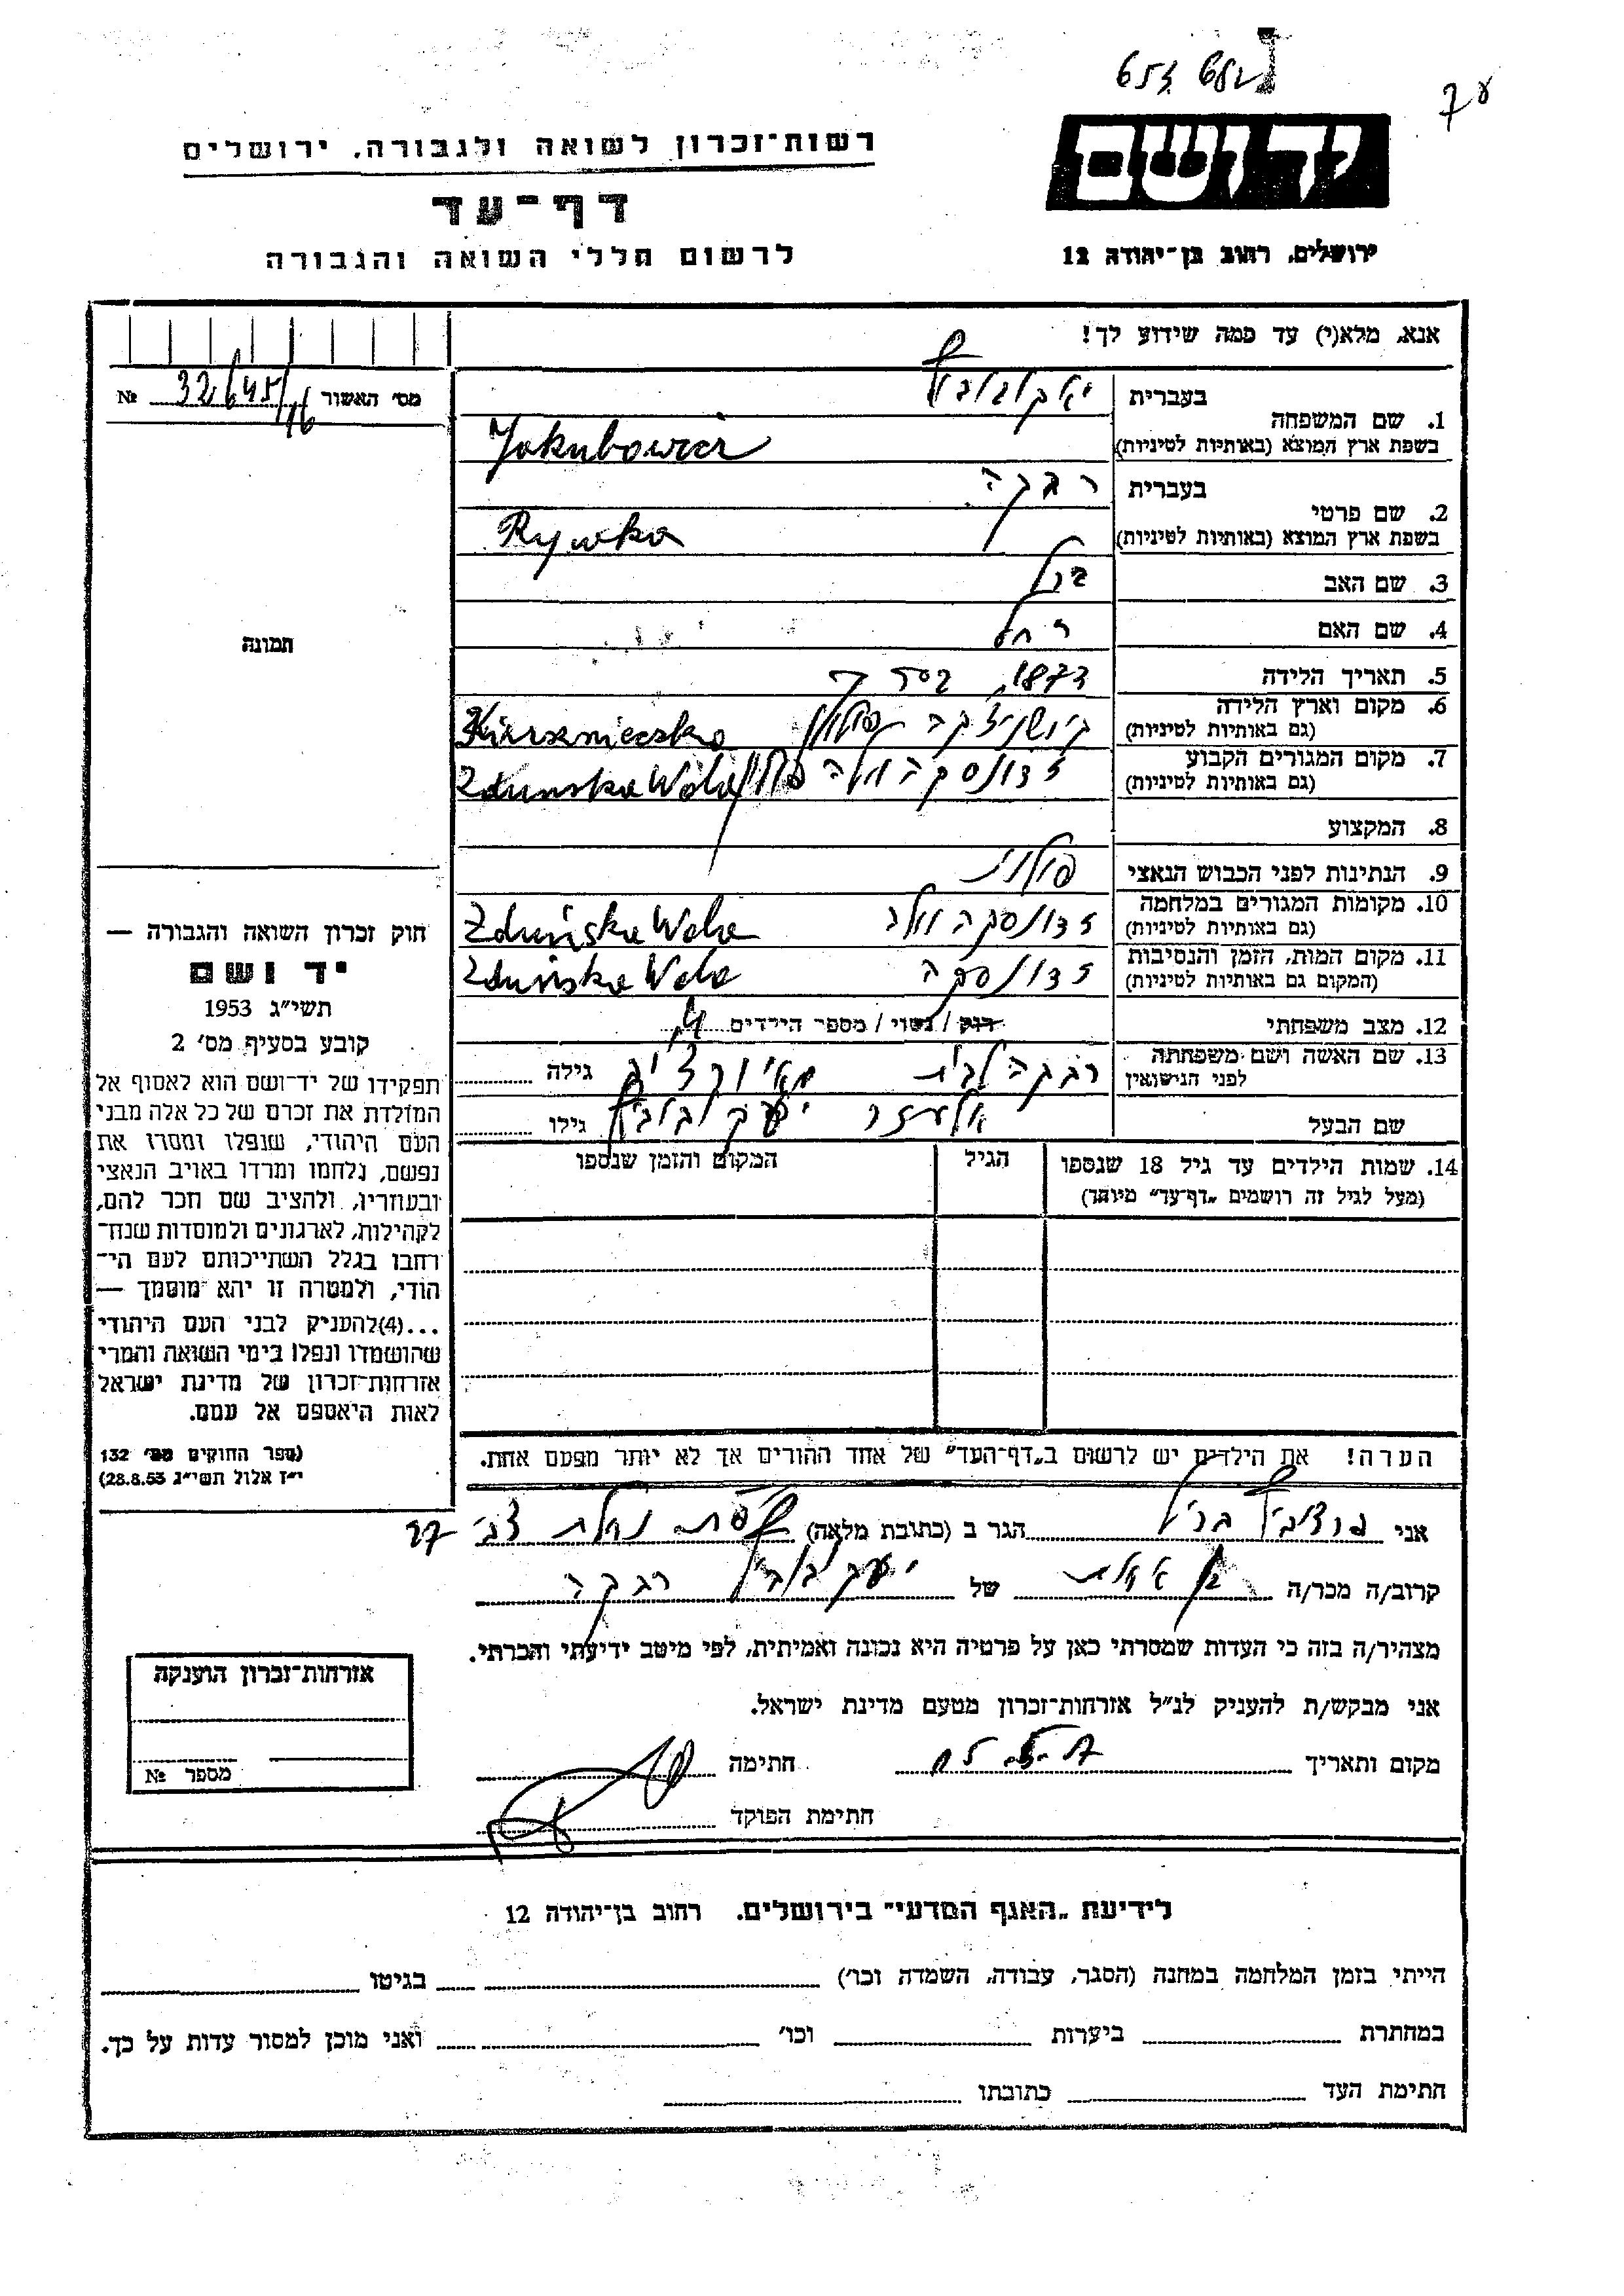 יד ושם
רשות־זכרון לשואה ולגבורה, ירושלים
דף־עד
לרשום חללי השואה והגבורה
ירושלים, רחוב בן־יהודה 12
אנא, מלא(י) עד כמה שידוע לך!
מס' האשור № 32645/16
1. שם המשפחה
בעברית
בשפת ארץ המוצא (באותיות לטיניות) Jakubowicz
2. שם פרטי
בעברית רבקה
בשפת ארץ המוצא (באותיות לטיניות) Rywka
3. שם האב
4. שם האם רחל
5. תאריך הלידה 1873,
6. מקום וארץ הלידה
(גם באותיות לטיניות)
7. מקום המגורים הקבוע זדונסקה וולה Zdunska Wola
(גם באותיות לטיניות)
8. המקצוע
9. הנתינות לפני הכבוש הנאצי פולנית
10. מקומות המגורים במלחמה זדונסקה וולה Zduńska Wola
(גם באותיות לטיניות)
11. מקום המות, הזמן והנסיבות זדונסקה Zduńska Wola
(המקום גם באותיות לטיניות)
12. מצב משפחתי רוק / נשוי / מספר הילדים 4
13. שם האשה ושם משפחתה רבקה לבית גילה
לפני הנישואין
שם הבעל אליעזר יעקובוביץ גילו
14. שמות הילדים עד גיל 18 שנספו
(מעל לגיל זה רושמים „דף־עד" מיוחד)
הגיל
המקום והזמן שנספו
הערה! את הילדים יש לרשום ב„דף־העד" של אחד ההורים אך לא יותר מפעם אחת.
תמונה
חוק זכרון השואה והגבורה —
יד ושם
תשי"ג 1953
קובע בסעיף מס' 2
תפקידו של יד־ושם הוא לאסוף אל
המולדת את זכרם של כל אלה מבני
העם היהודי, שנפלו ומסרו את
נפשם, נלחמו ומרדו באויב הנאצי
ובעוזריו, ולהציב שם וזכר להם,
לקהילות, לארגונים ולמוסדות שנח־
רבו בגלל השתייכותם לעם הי־
הודי, ולמטרה זו יהא מוסמך —
...(4)להעניק לבני העם היהודי
שהושמדו ונפלו בימי השואה והמרי
אזרחות־זכרון של מדינת ישראל
לאות היאספם אל עמם.
(ספר החוקים מס' 132
י"ז אלול תשי"ג 28.8.53)
אני הגר ב (כתובת מלאה)
קרוב/ה מכר/ה של יעקובוביץ רבקה
מצהיר/ה בזה כי העדות שמסרתי כאן על פרטיה היא נכונה ואמיתית, לפי מיטב ידיעתי והכרתי.
אני מבקש/ת להעניק לנ"ל אזרחות־זכרון מטעם מדינת ישראל.
מקום ותאריך חתימה
חתימת הפוקד
אזרחות־זכרון הוענקה
מספר №
לידיעת „האגף המדעי" בירושלים, רחוב בן־יהודה 12
הייתי בזמן המלחמה במחנה (הסגר, עבודה, השמדה וכו') בגיטו
במחתרת ביערות וכו' ואני מוכן למסור עדות על כך.
חתימת העד כתובתו